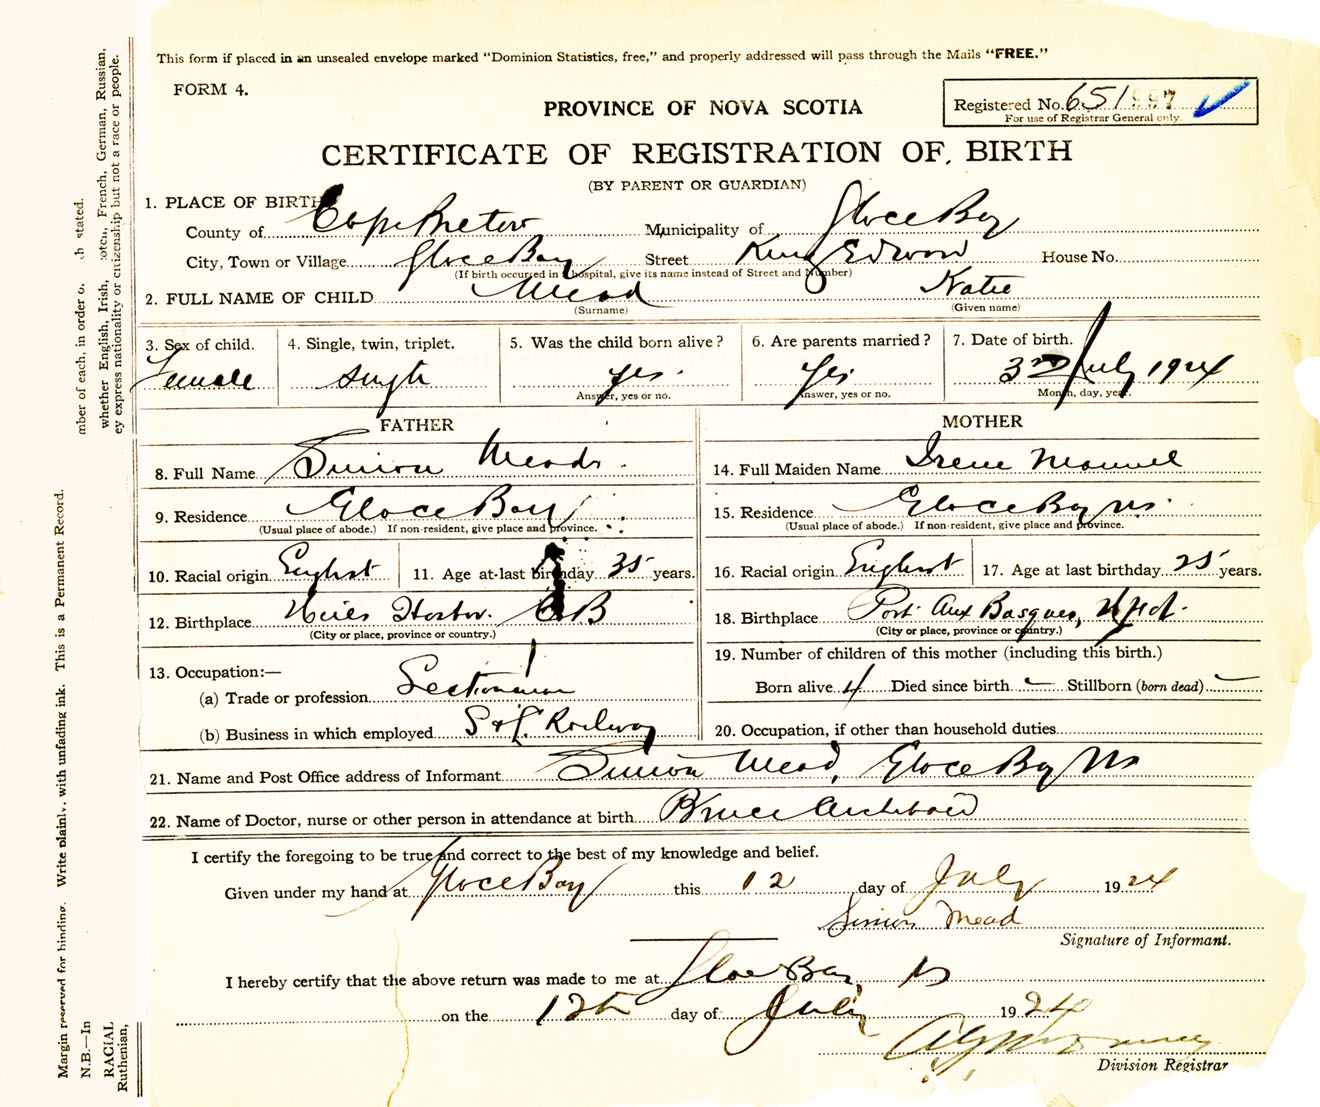 This form if placed in an unsealed envelope marked "Dominion Statistics, free," and properly addressed will pass through the Mails "FREE."
FORM 4.
PROVINCE OF NOVA SCOTIA
Registered No. 651 997
For use of Registrar General only.
CERTIFICATE OF REGISTRATION OF BIRTH
(BY PARENT OR GUARDIAN)
1. PLACE OF BIRTH
County of Cape Breton Municipality of Glace Bay
City, Town or Village Glace Bay Street King Edward House No.
(If birth occurred in hospital, give its name instead of Street and Number)
2. FULL NAME OF CHILD Mead Katie
(Surname) (Given name)
3. Sex of child. 4. Single, twin, triplet. 5. Was the child born alive? 6. Are parents married? 7. Date of birth.
Female single yes. yes 3rd July 1924
Answer, yes or no. Answer, yes or no. Month, day, year.
FATHER MOTHER
8. Full Name Simion Meads. 14. Full Maiden Name Irene
9. Residence Glace Bay 15. Residence Glace Bay NS.
(Usual place of abode.) If non-resident, give place and province. (Usual place of abode.) If non-resident, give place and province.
10. Racial origin English 11. Age at last birthday 35 years. 16. Racial origin English 17. Age at last birthday 25 years.
12. Birthplace CB 18. Birthplace Port Aux Basques, Nfld.
(City or place, province or country.) (City or place, province or country.)
13. Occupation:— 19. Number of children of this mother (including this birth.)
(a) Trade or profession Sectionman Born alive 4 Died since birth — Stillborn (born dead) —
(b) Business in which employed S & L Railway 20. Occupation, if other than household duties
21. Name and Post Office address of Informant Simion Mead, Glace Bay NS
22. Name of Doctor, nurse or other person in attendance at birth Bruce Archibald
I certify the foregoing to be true and correct to the best of my knowledge and belief.
Given under my hand at Glace Bay this 12 day of July 1924
Simion Mead
Signature of Informant.
I hereby certify that the above return was made to me at Glace Bay NS
on the 12th day of July 1924
Division Registrar
Margin reserved for binding. Write plainly, with unfading ink. This is a Permanent Record.
N.B.—In mber of each, in order o. .h stated.
RACIAL whether English, Irish, Scotch, French, German, Russian,
Ruthenian, ey express nationality or citizenship but not a race or people.